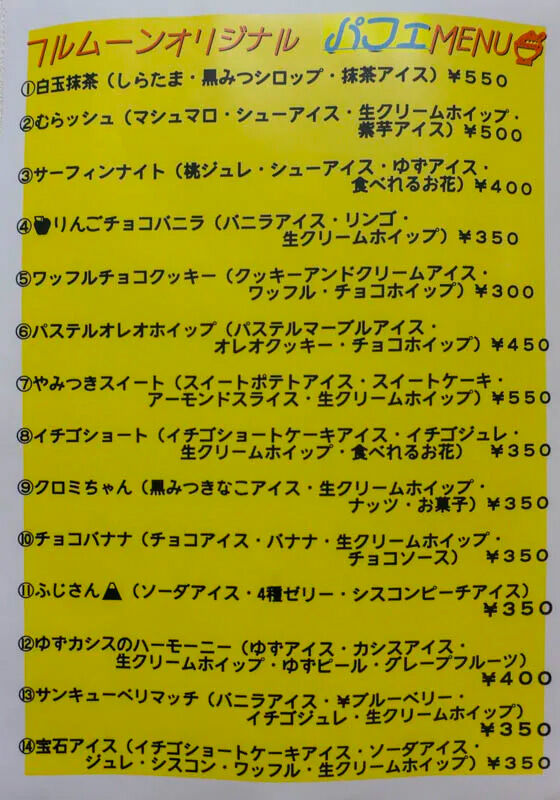 フルムーンオリジナル パフェMENU
①白玉抹茶（しらたま・黒みつシロップ・抹茶アイス）￥550
②むらッシュ（マシュマロ・シューアイス・生クリームホイップ・
紫芋アイス）￥500
③サーフィンナイト（桃ジュレ・シューアイス・ゆずアイス・
食べれるお花）￥400
④りんごチョコバニラ（バニラアイス・リンゴ・
生クリームホイップ）￥350
⑤ワッフルチョコクッキー（クッキーアンドクリームアイス・
ワッフル・チョコホイップ）￥300
⑥パステルオレオホイップ（パステルマーブルアイス・
オレオクッキー・チョコホイップ）￥450
⑦やみつきスイート（スイートポテトアイス・スイートケーキ・
アーモンドスライス・生クリームホイップ）￥550
⑧イチゴショート（イチゴショートケーキアイス・イチゴジュレ・
生クリームホイップ・食べれるお花）￥350
⑨クロミちゃん（黒みつきなこアイス・生クリームホイップ・
ナッツ・お菓子）￥350
⑩チョコバナナ（チョコアイス・バナナ・生クリームホイップ・
チョコソース）￥350
⑪ふじさん（ソーダアイス・4種ゼリー・シスコンピーチアイス）
￥350
⑫ゆずカシスのハーモーニー（ゆずアイス・カシスアイス・
生クリームホイップ・ゆずピール・グレープフルーツ）
￥400
⑬サンキューベリマッチ（バニラアイス・￥ブルーベリー・
イチゴジュレ・生クリームホイップ）
￥350
⑭宝石アイス（イチゴショートケーキアイス・ソーダアイス・
ジュレ・シスコン・ワッフル・生クリームホイップ）￥350